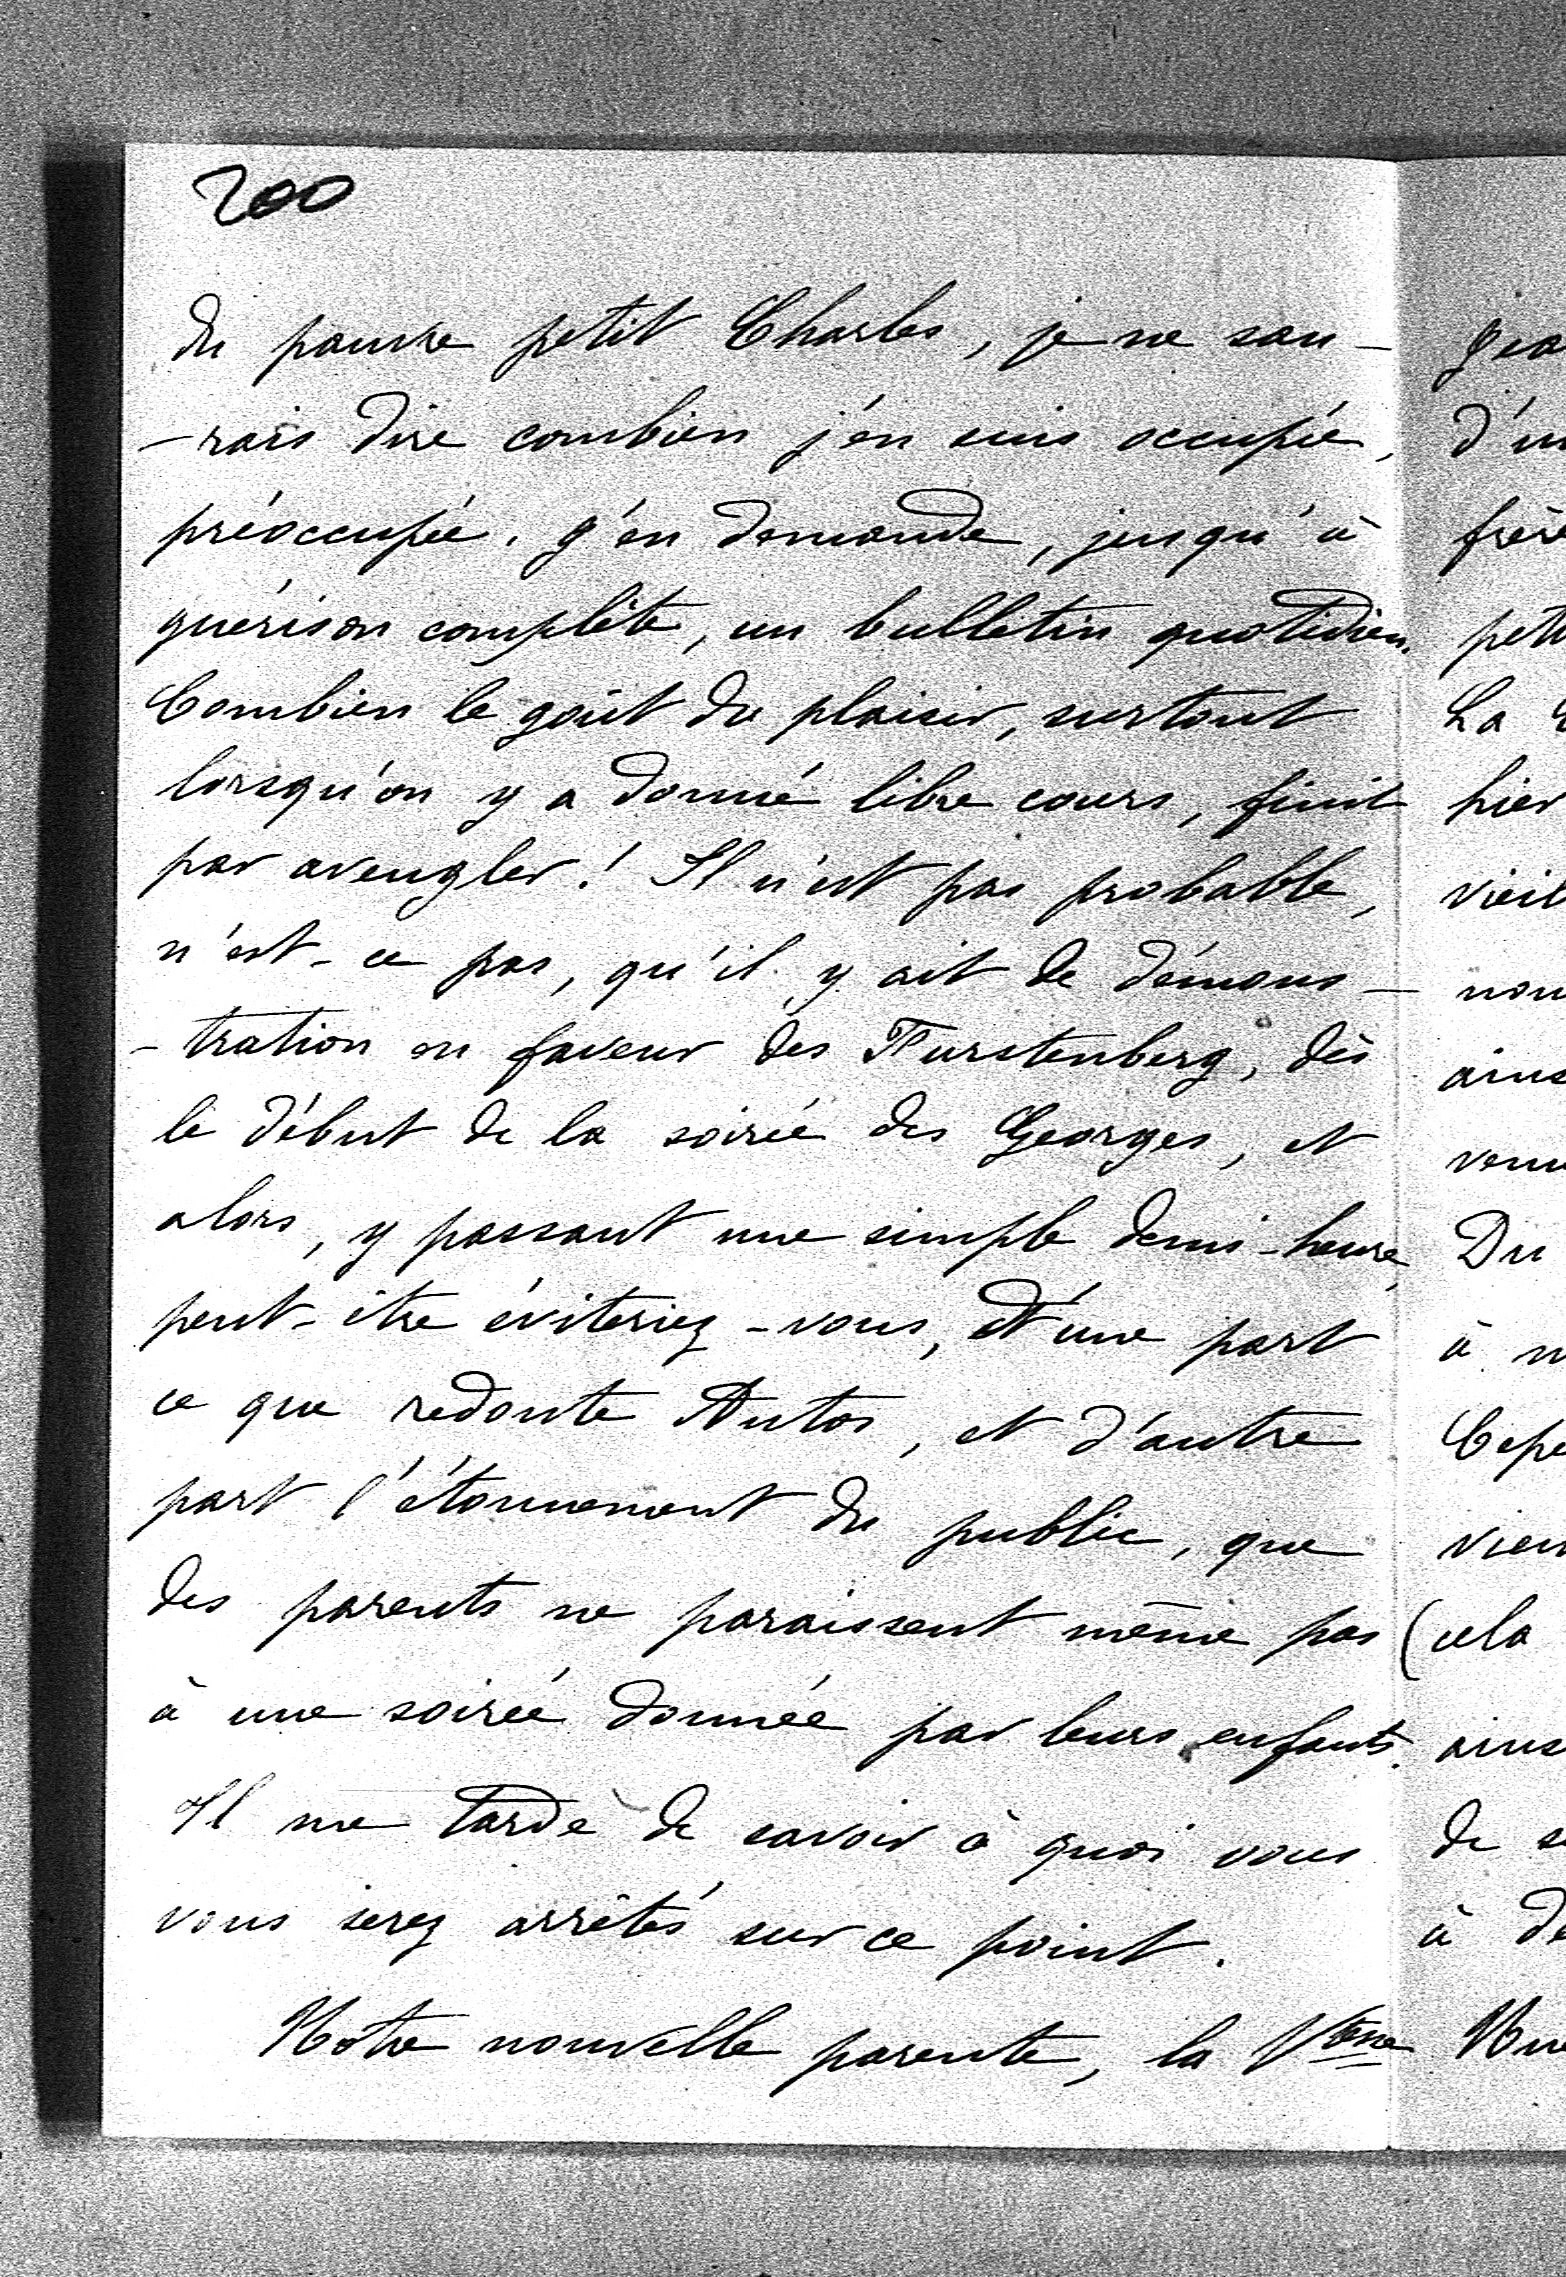 200
du pauvre petit Charles, je ne sau-
-rais dire combien j'en suis occupée,
préoccupée. J'en demande, jusqu'à
guérison complète, un bulletin quotidien.
Combien le goût du plaisir, surtout
lorsqu'on y a donné libre cours, finit
par aveugler! Il n'est pas probable,
n'est-ce pas, qu'il y ait de démons-
-tration en faveur des Furstenberg, dès
le début de la soirée des Georges, et
alors, y passant une simple demi-heure,
peut-être éviteriez-vous, d'une part
ce que redoute Autos, et d'autre
part l'étonnement du public, que
des parents ne paraissent même pas
à une soirée donnée par leurs enfants.
Il me tarde de savoir à quoi vous
vous serez arrêtés sur ce point.
Notre nouvelle parente, la Vtesse
d'un
frère
La
hier
vieil
Du
à
(cela
de
à